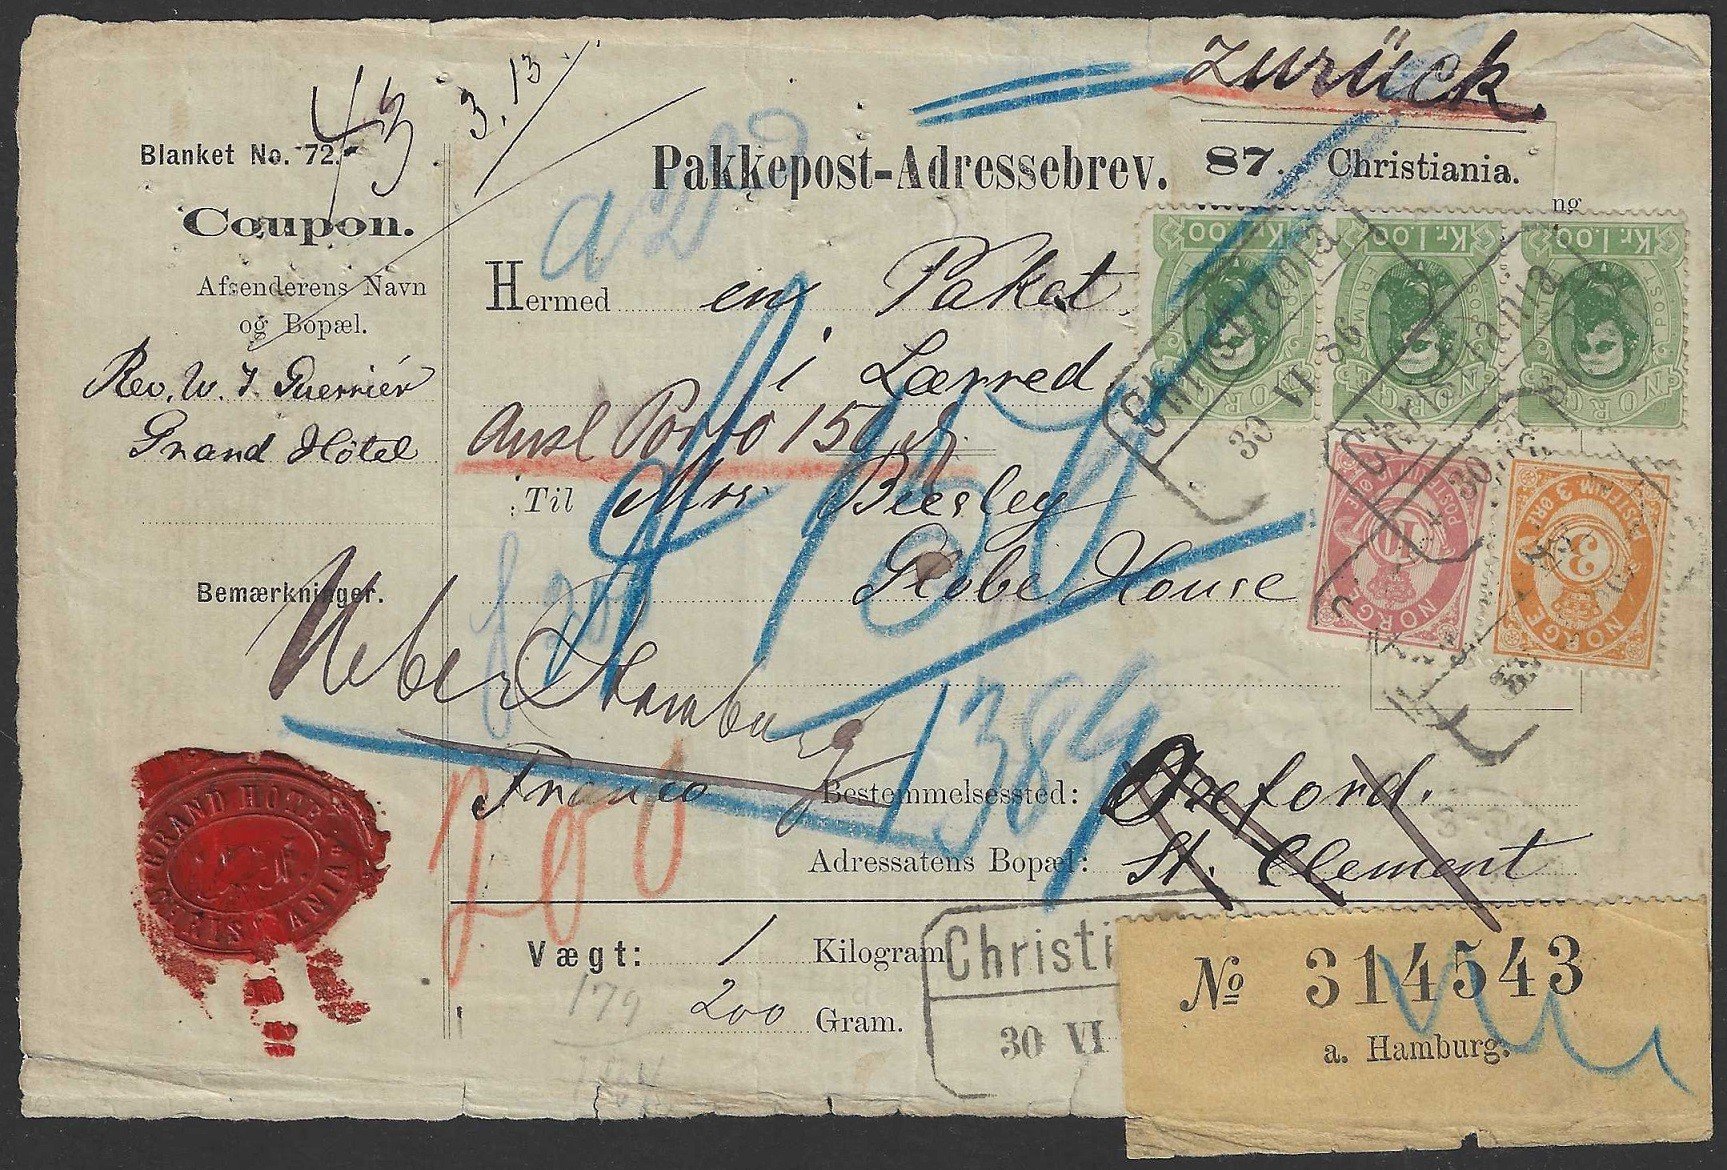 Zurück.
43
3.13
Blanket No. 72.
Pakkepost-Adressebrev.
87. Christiania.
ng
Coupon.
Afsenderens Navn
og Bopæl.
Rev. W. J. Guerrier
Grand Hôtel
Bemærkninger.
Hermed en Paket
i Lærred
Ausl Porto 150
Til Mrs Beesley
Globe House
150
Ueber Hamburg
1389
Franco
200
Bestemmelsessted: Oxford.
Adressatens Bopæl: St. Clement
Vægt: 1 Kilogram
200 Gram.
179
Kr. 1.00
Kr. 1.00
Kr. 1.00
NORGE
3
NORGE
Christiania
30 VI 86
Christiania
30
Christi
30 VI
No 314543
a. Hamburg.
GRAND HOTEL
CHRISTIANIA